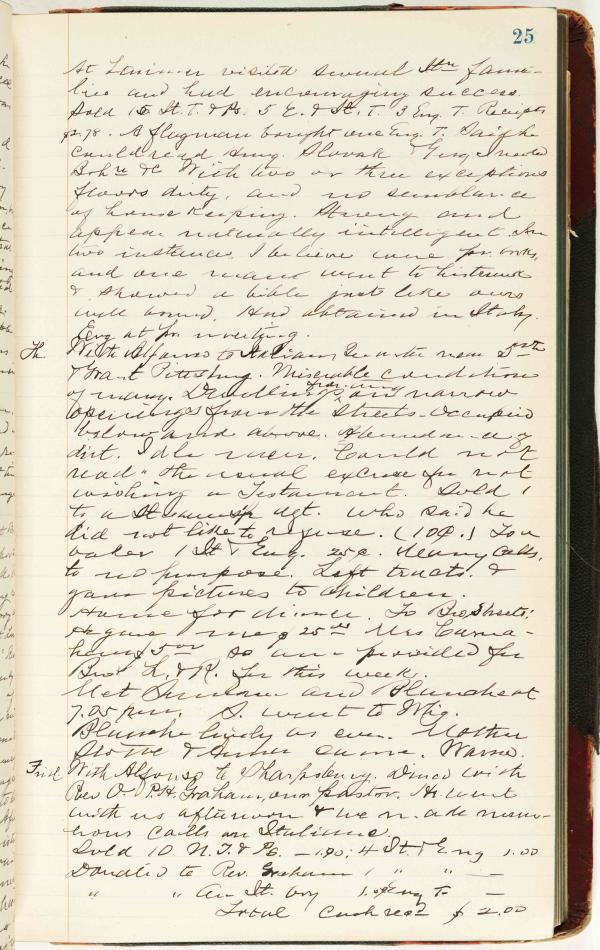 25
At Larimer visited several Itn fami-
lies and had encouraging success.
Sold 15 It. T. & Ps. 5 E. & It. T. 3 Eng. T. Receipts
$2.78. A flagman bought one Eng. T. Said he
could read Hung. Slovak & Eng. needed
Bohn &c With two or three exceptions
floors dirty, and no semblance
of housekeeping. Strong and
appear naturally intelligent. In
two instances, I believe were pr. books,
and one man went to his trunk
& showed a bible just like ours
well bound. Had obtained in Italy.
Evg at pr. meeting.
Th. With Alfonso to Italian Quarter near 5th
& Grant Pittsburg. Miserable conditions
of many. Dwellings from any on narrow
openings from the streets. Occupied
below and above.
dirt. Idle men. Could not
read" the usual excuse for not
wishing a Testament. Sold 1
to a Steamship agt. who said he
did not like to refuse. (10¢.) To a
baker 1 It & Eng. 25c. Many calls,
to no purpose. Left tracts. &
gave pictures to children.
Home for dinner. To Bro. Streets:
He gave me $25.00 Mrs Carna-
han $5.00 so am provided for
Bros L. & R. for this week.
Met and Blanche at
7.25 P.M. S. went to Wig.
Blanche lively as ever. Mother
& came. Warm.
Frid With Alfonso to Sharpsburg. Dined with
Rev O. P. H. Graham, our pastor. He went
with us afternoon & we made num-
erous calls on Italians.
Sold 10 N.T. & Ps. — 1.00; 4 It. & Eng 1.00
Donated to Rev. Graham 1 " " —
" " An It. boy 1 Eng T. —
Total Cash recd $2.00